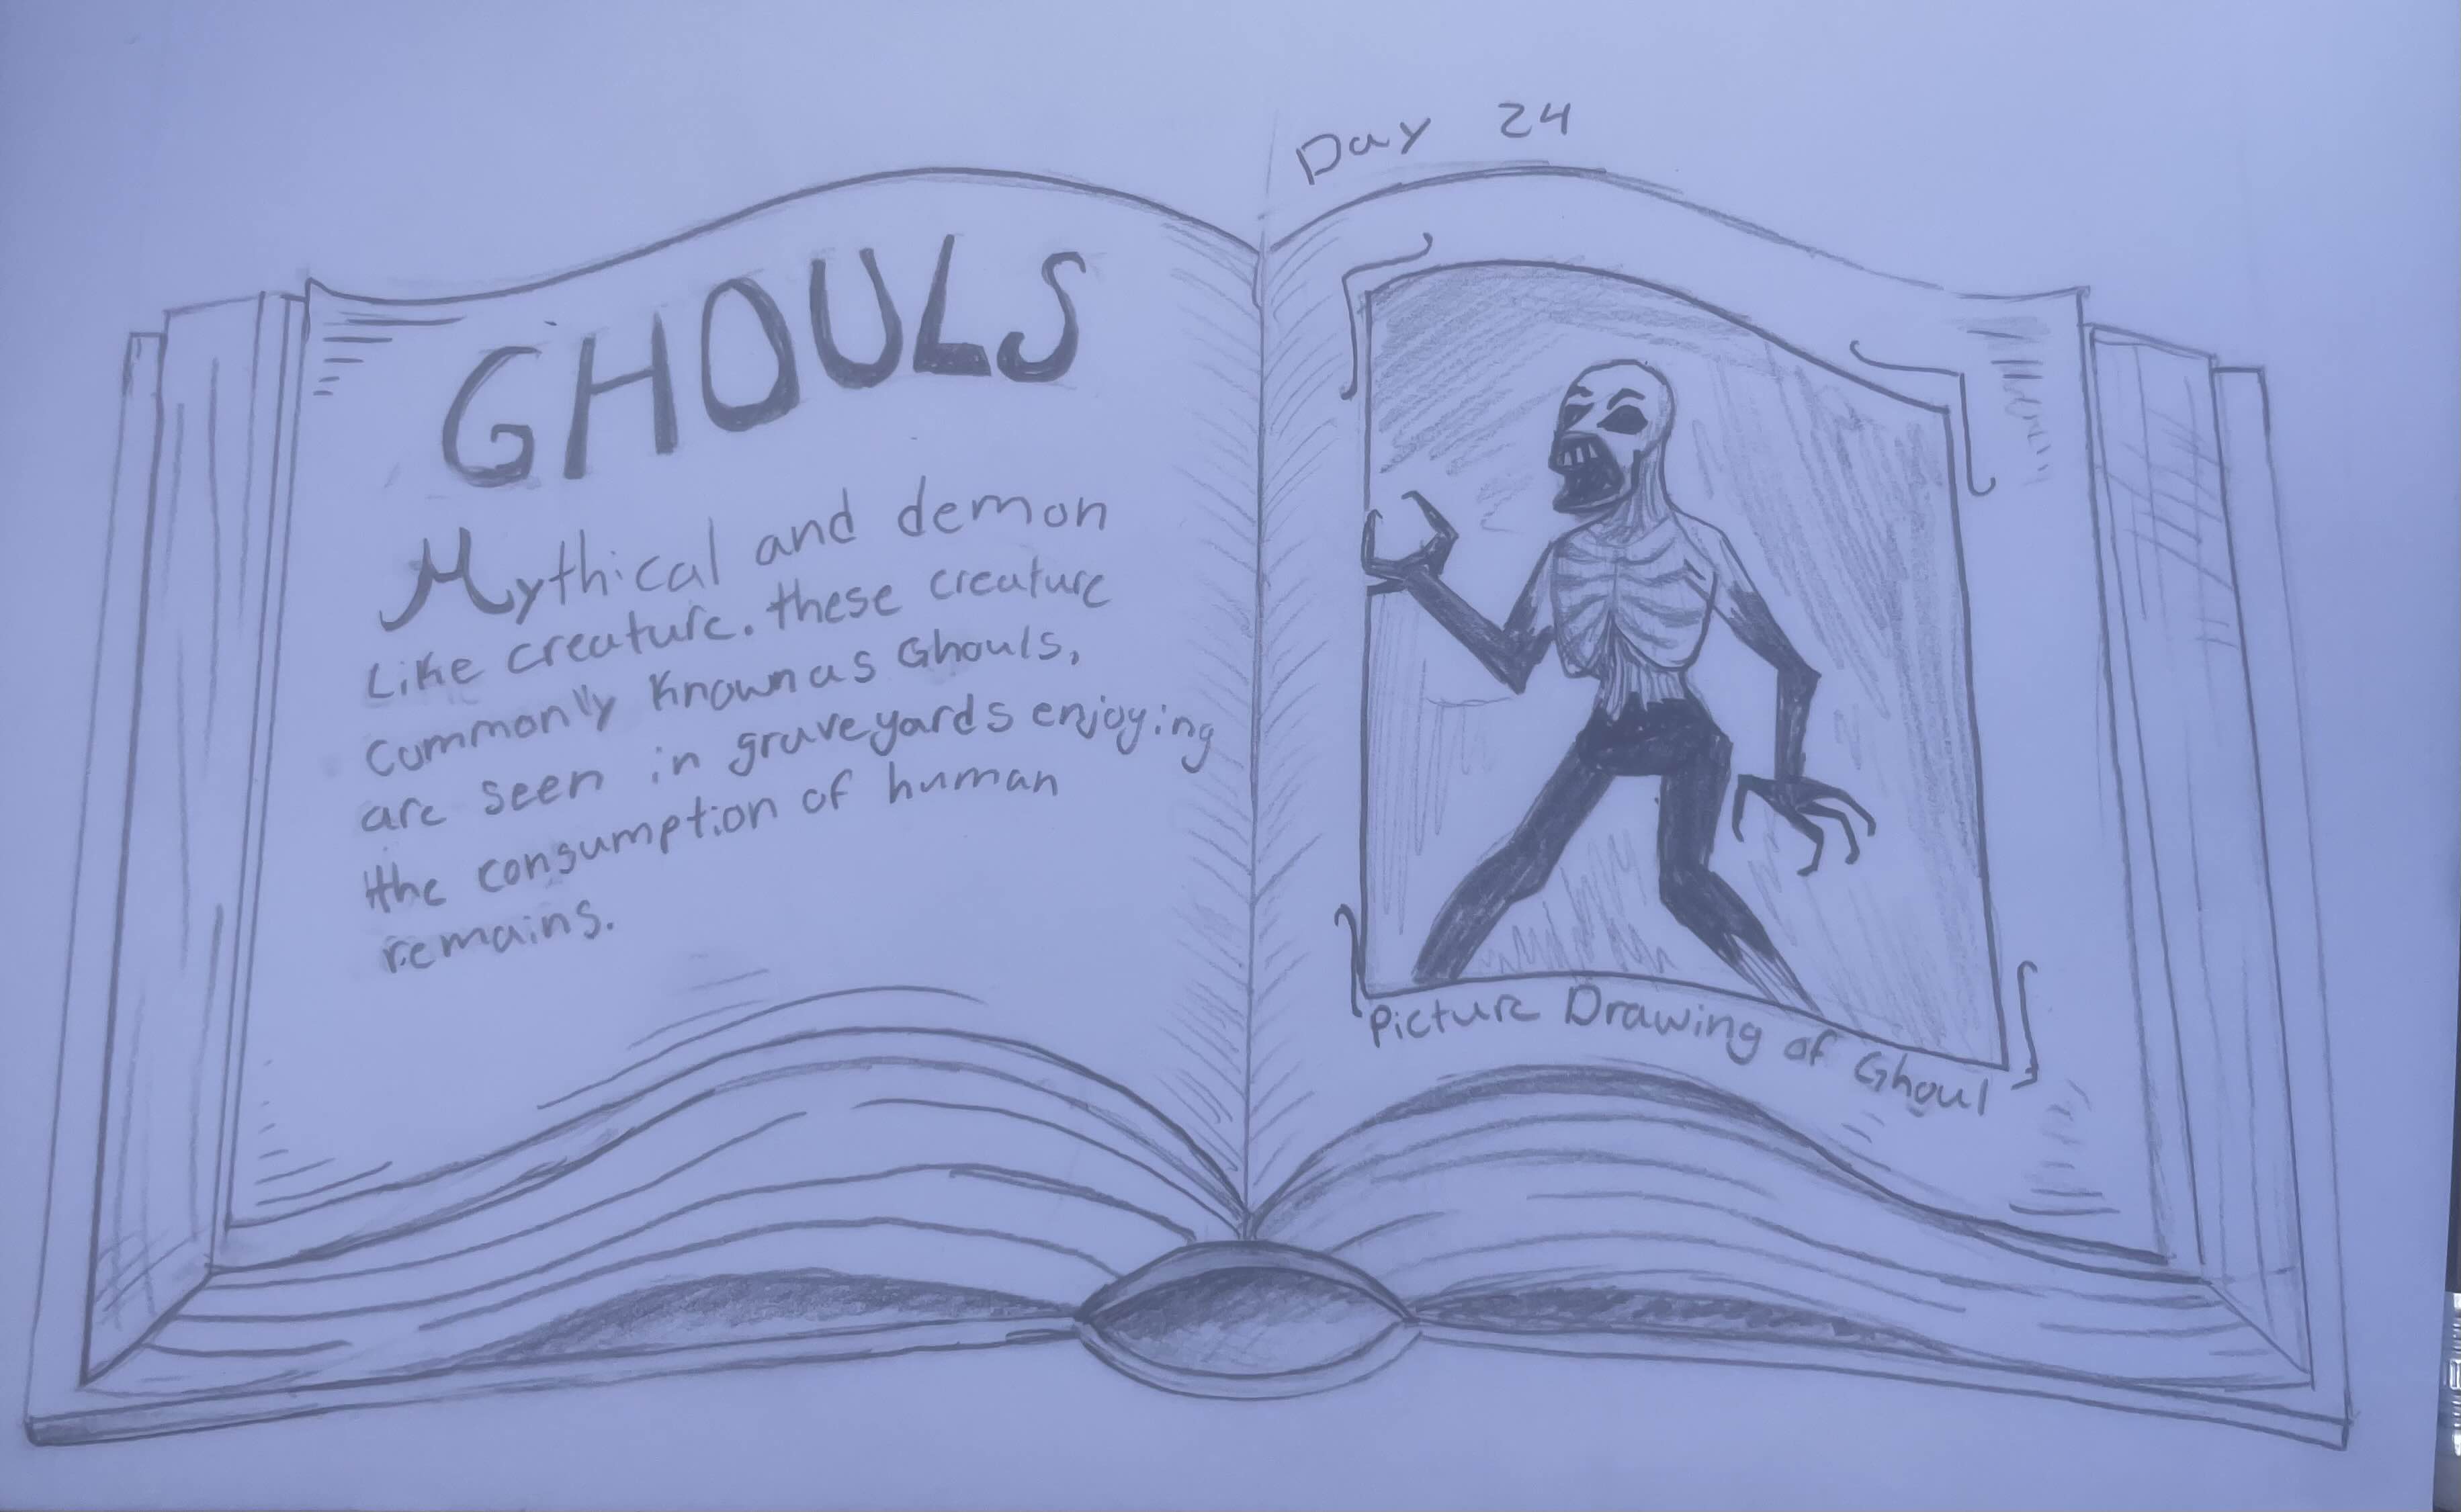 Day 24
GHOULS
Mythical and demon
Like creature. these creature
commonly known as Ghouls,
are seen in graveyards enjoying
the consumption of human
remains.
Picture Drawing of Ghoul